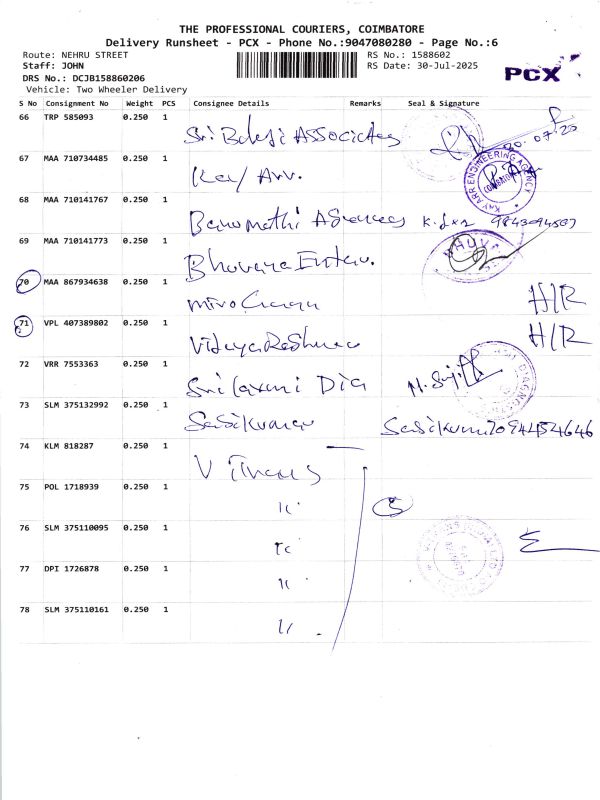 THE PROFESSIONAL COURIERS, COIMBATORE
Delivery Runsheet - PCX - Phone No.:9047080280 - Page No.:6
Route: NEHRU STREET
Staff: JOHN
DRS No.: DCJB158860206
Vehicle: Two Wheeler Delivery
RS No.: 1588602
RS Date: 30-Jul-2025
PCX
S No Consignment No Weight PCS Consignee Details Remarks Seal & Signature
66 TRP 585093 0.250 1 Sri Balaji Associates
67 MAA 710734485 0.250 1 Kay Arr. KAY ARR ENGINEERING AGENCY
68 MAA 710141767 0.250 1 Banumathi Agencies
69 MAA 710141773 0.250 1
70 MAA 867934638 0.250 1 H/R
71 VPL 407389802 0.250 1 H/R
72 VRR 7553363 0.250 1 Sri Laxmi Dia
73 SLM 375132992 0.250 1 Sasikumar
74 KLM 818287 0.250 1 V Trans
75 POL 1718939 0.250 1 5
76 SLM 375110095 0.250 1
77 DPI 1726878 0.250 1
78 SLM 375110161 0.250 1